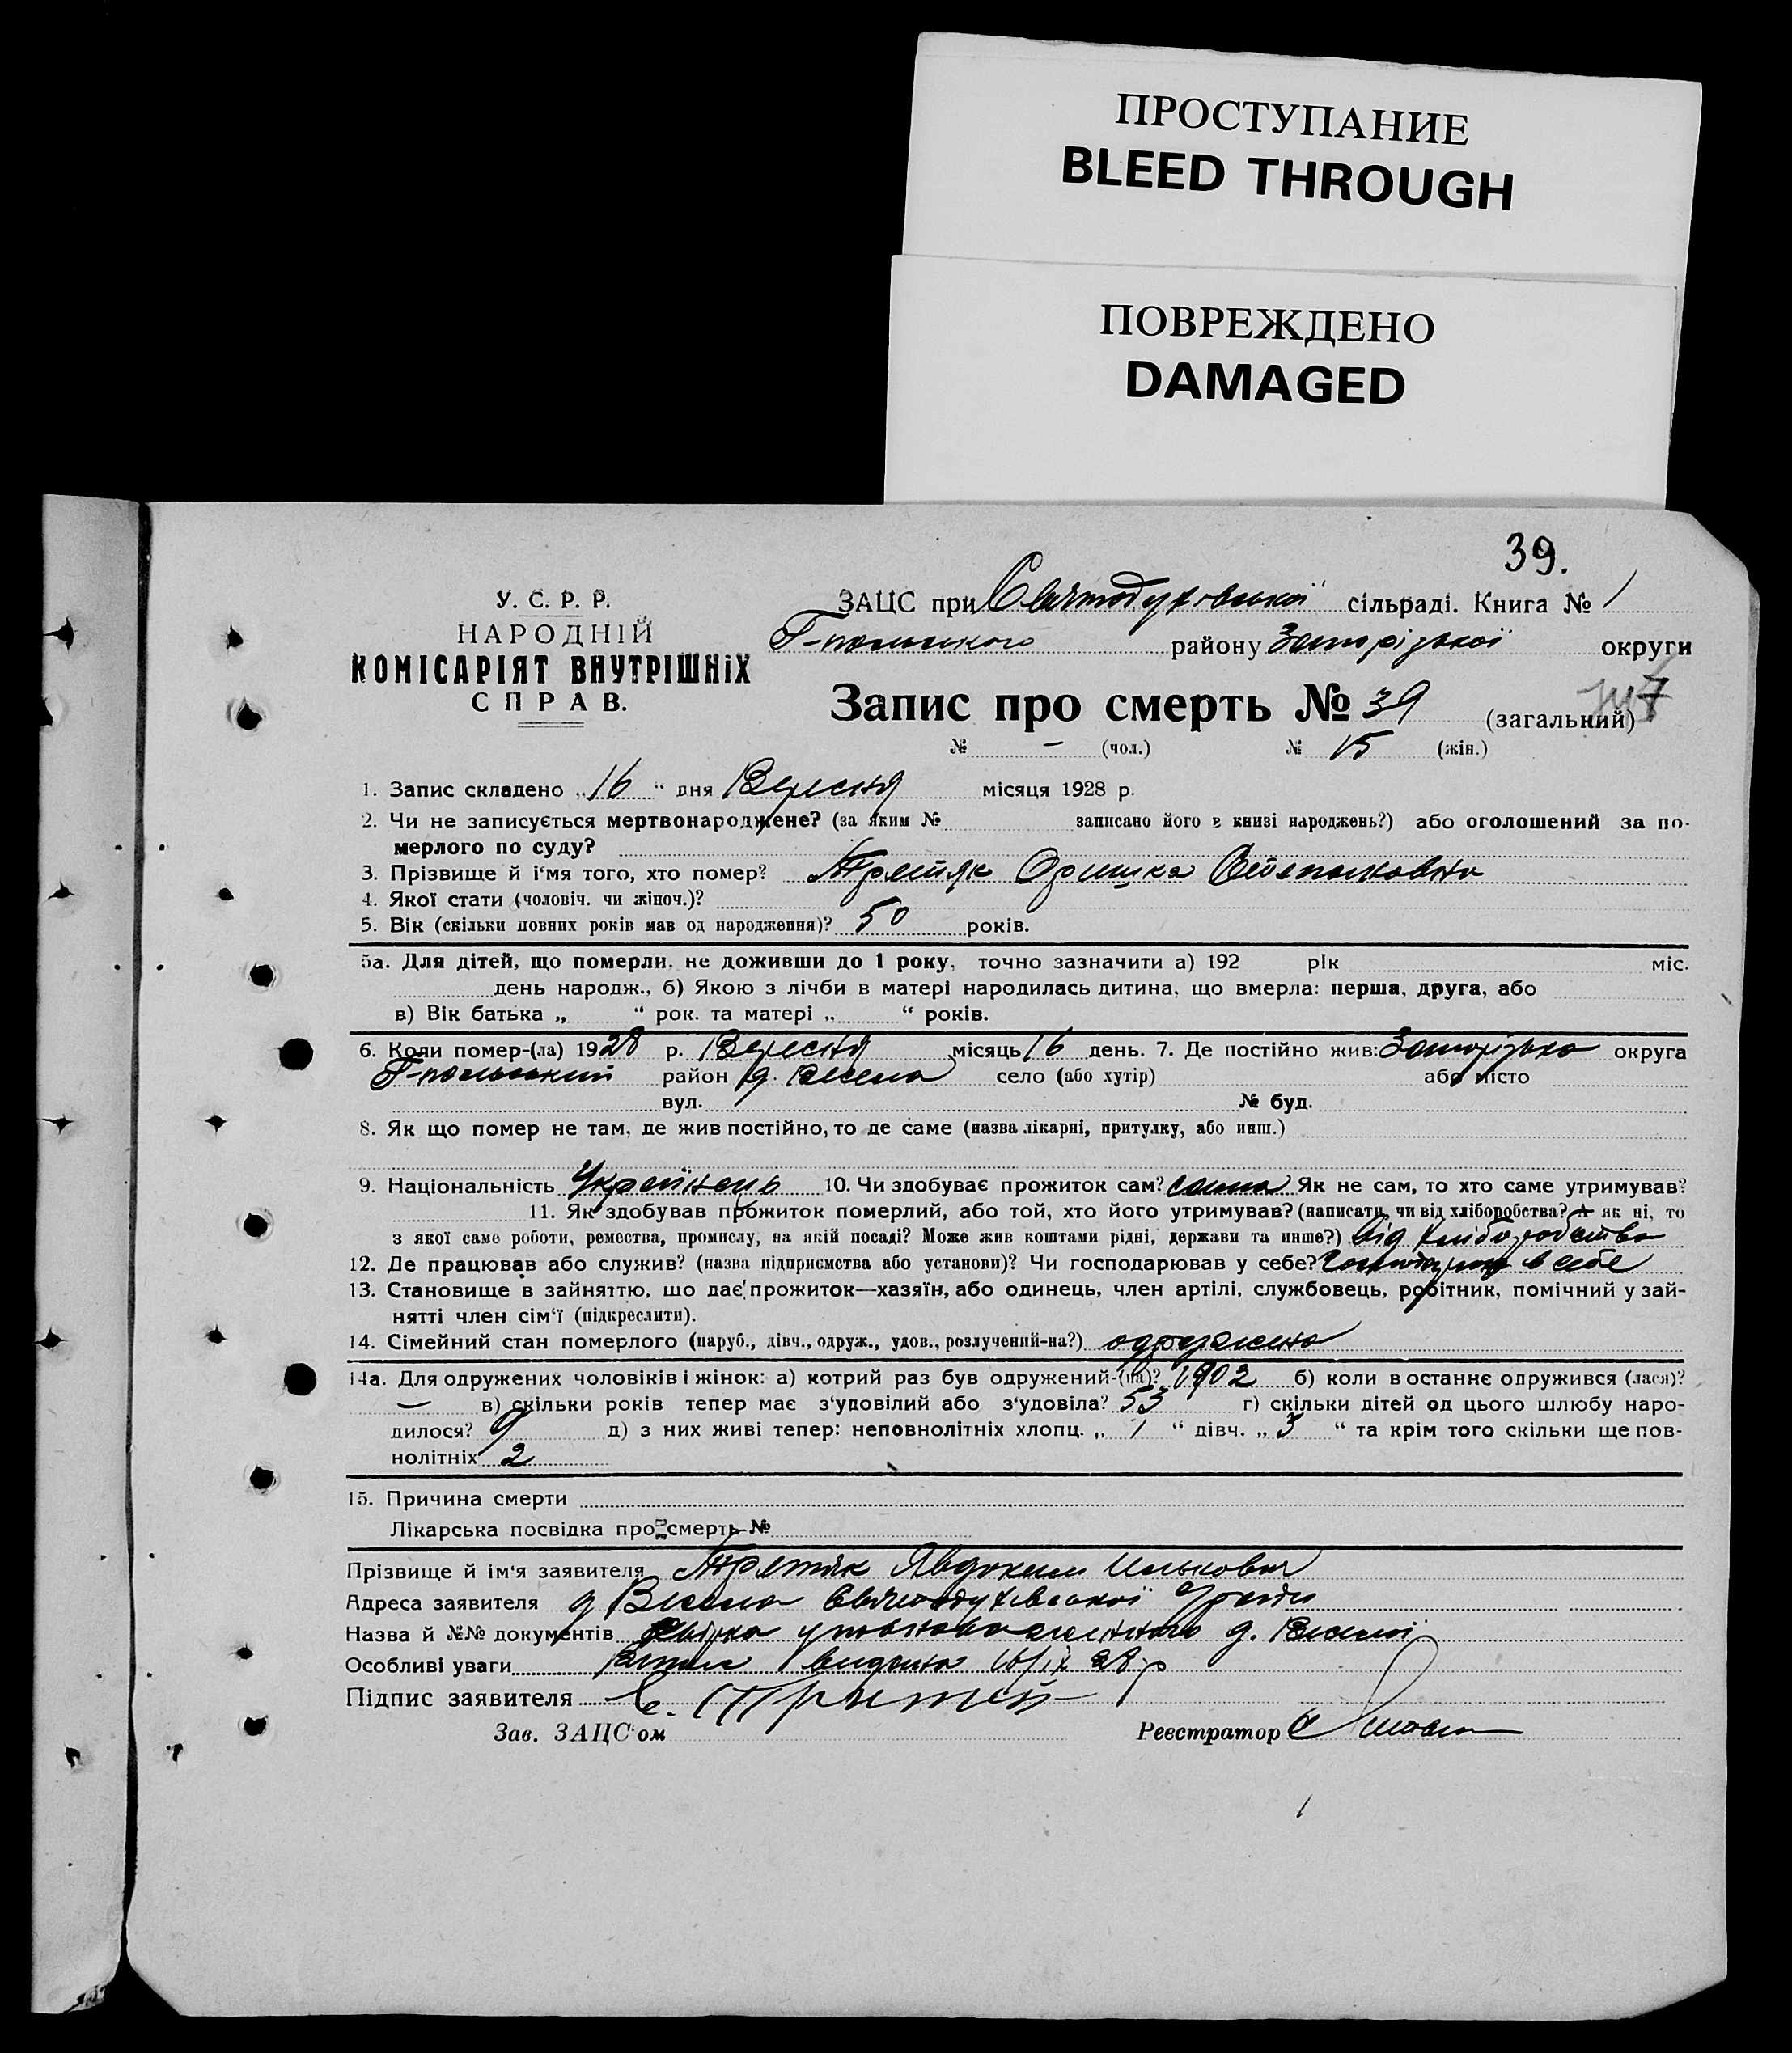 ПРОСТУПАНИЕ
BLEED THROUGH
ПОВРЕЖДЕНО
DAMAGED
39.
У. С. Р. Р.
НАРОДНІЙ
КОМІСАРІЯТ ВНУТРІШНІХ
СПРАВ.
ЗАЦС при Святодухівської сільраді. Книга № 1
Г-польського району Запорізької округи
Запис про смерть № 39 (загальний)
7
№ — (чол.) № 15 (жін.)
1. Запис складено „16“ дня Вересня місяця 1928 р.
2. Чи не записується мертвонароджене? (за яким № записано його в книзі народжень?) або оголошений за по-
мерлого по суду?
3. Прізвище й і‘мя того, хто помер? Третяк Оришка Степановна
4. Якої стати (чоловіч. чи жіноч.)?
5. Вік (скільки повних років мав од народження)? 50 років.
5а. Для дітей, що померли, не доживши до 1 року, точно зазначити а) 192 рік міс.
день народж., б) Якою з лічби в матері народилась дитина, що вмерла: перша, друга, або
в) Вік батька „ “ рок. та матері „ “ років.
6. Коли помер-(ла) 1928 р. Вересня місяць 16 день. 7. Де постійно жив: Запорізька округа
Г-польський район д. Весела село (або хутір) або місто
вул. № буд.
8. Як що помер не там, де жив постійно, то де саме (назва лікарні, притулку, або инш.)
9. Національність Українець 10. Чи здобуває прожиток сам? сама Як не сам, то хто саме утримував?
11. Як здобував прожиток померлий, або той, хто його утримував? (написати, чи від хліборобства? А як ні, то
з якої саме роботи, ремества, промислу, на якій посаді? Може жив коштами рідні, держави та инше?) від хліборобства
12. Де працював або служив? (назва підприємства або установи)? Чи господарював у себе? в себе
13. Становище в зайняттю, що дає прожиток—хазяїн, або одинець, член артілі, службовець, робітник, помічний у зай-
нятті член сім‘ї (підкреслити).
14. Сімейний стан померлого (паруб., дівч., одруж., удов., розлучений-на?) одружена
14а. Для одружених чоловіків і жінок: а) котрий раз був одружений-(на)? 1902 б) коли востаннє одружився (лася)?
— в) скільки років тепер має з‘удовілий або з‘удовіла? 53 г) скільки дітей од цього шлюбу наро-
дилося? 9 д) з них живі тепер: неповнолітніх хлопц. „ 1 “ дівч. „ 3 “ та крім того скільки ще пов-
нолітніх 2
15. Причина смерти
Лікарська посвідка про смерть №
Прізвище й ім‘я заявителя Третяк Явдоким Илькович
Адреса заявителя д Весела Святодухівської
Назва й №№ документів уповноваженого д. Веселої
Особливі уваги видана 16/ІХ 28 р
Підпис заявителя Є. Третяк
Зав. ЗАЦС‘ом Реєстратор